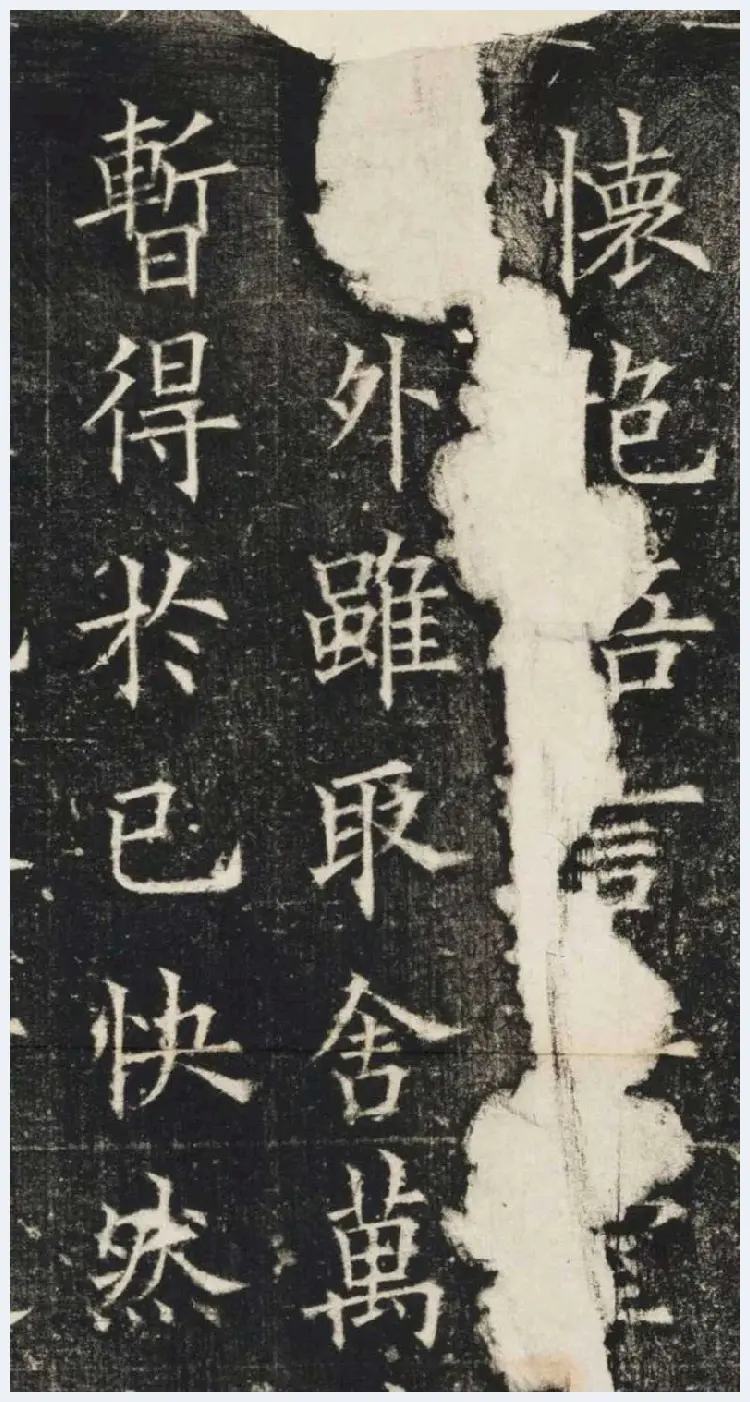 懷抱悟言
外雖取舍萬
暫得於己快然